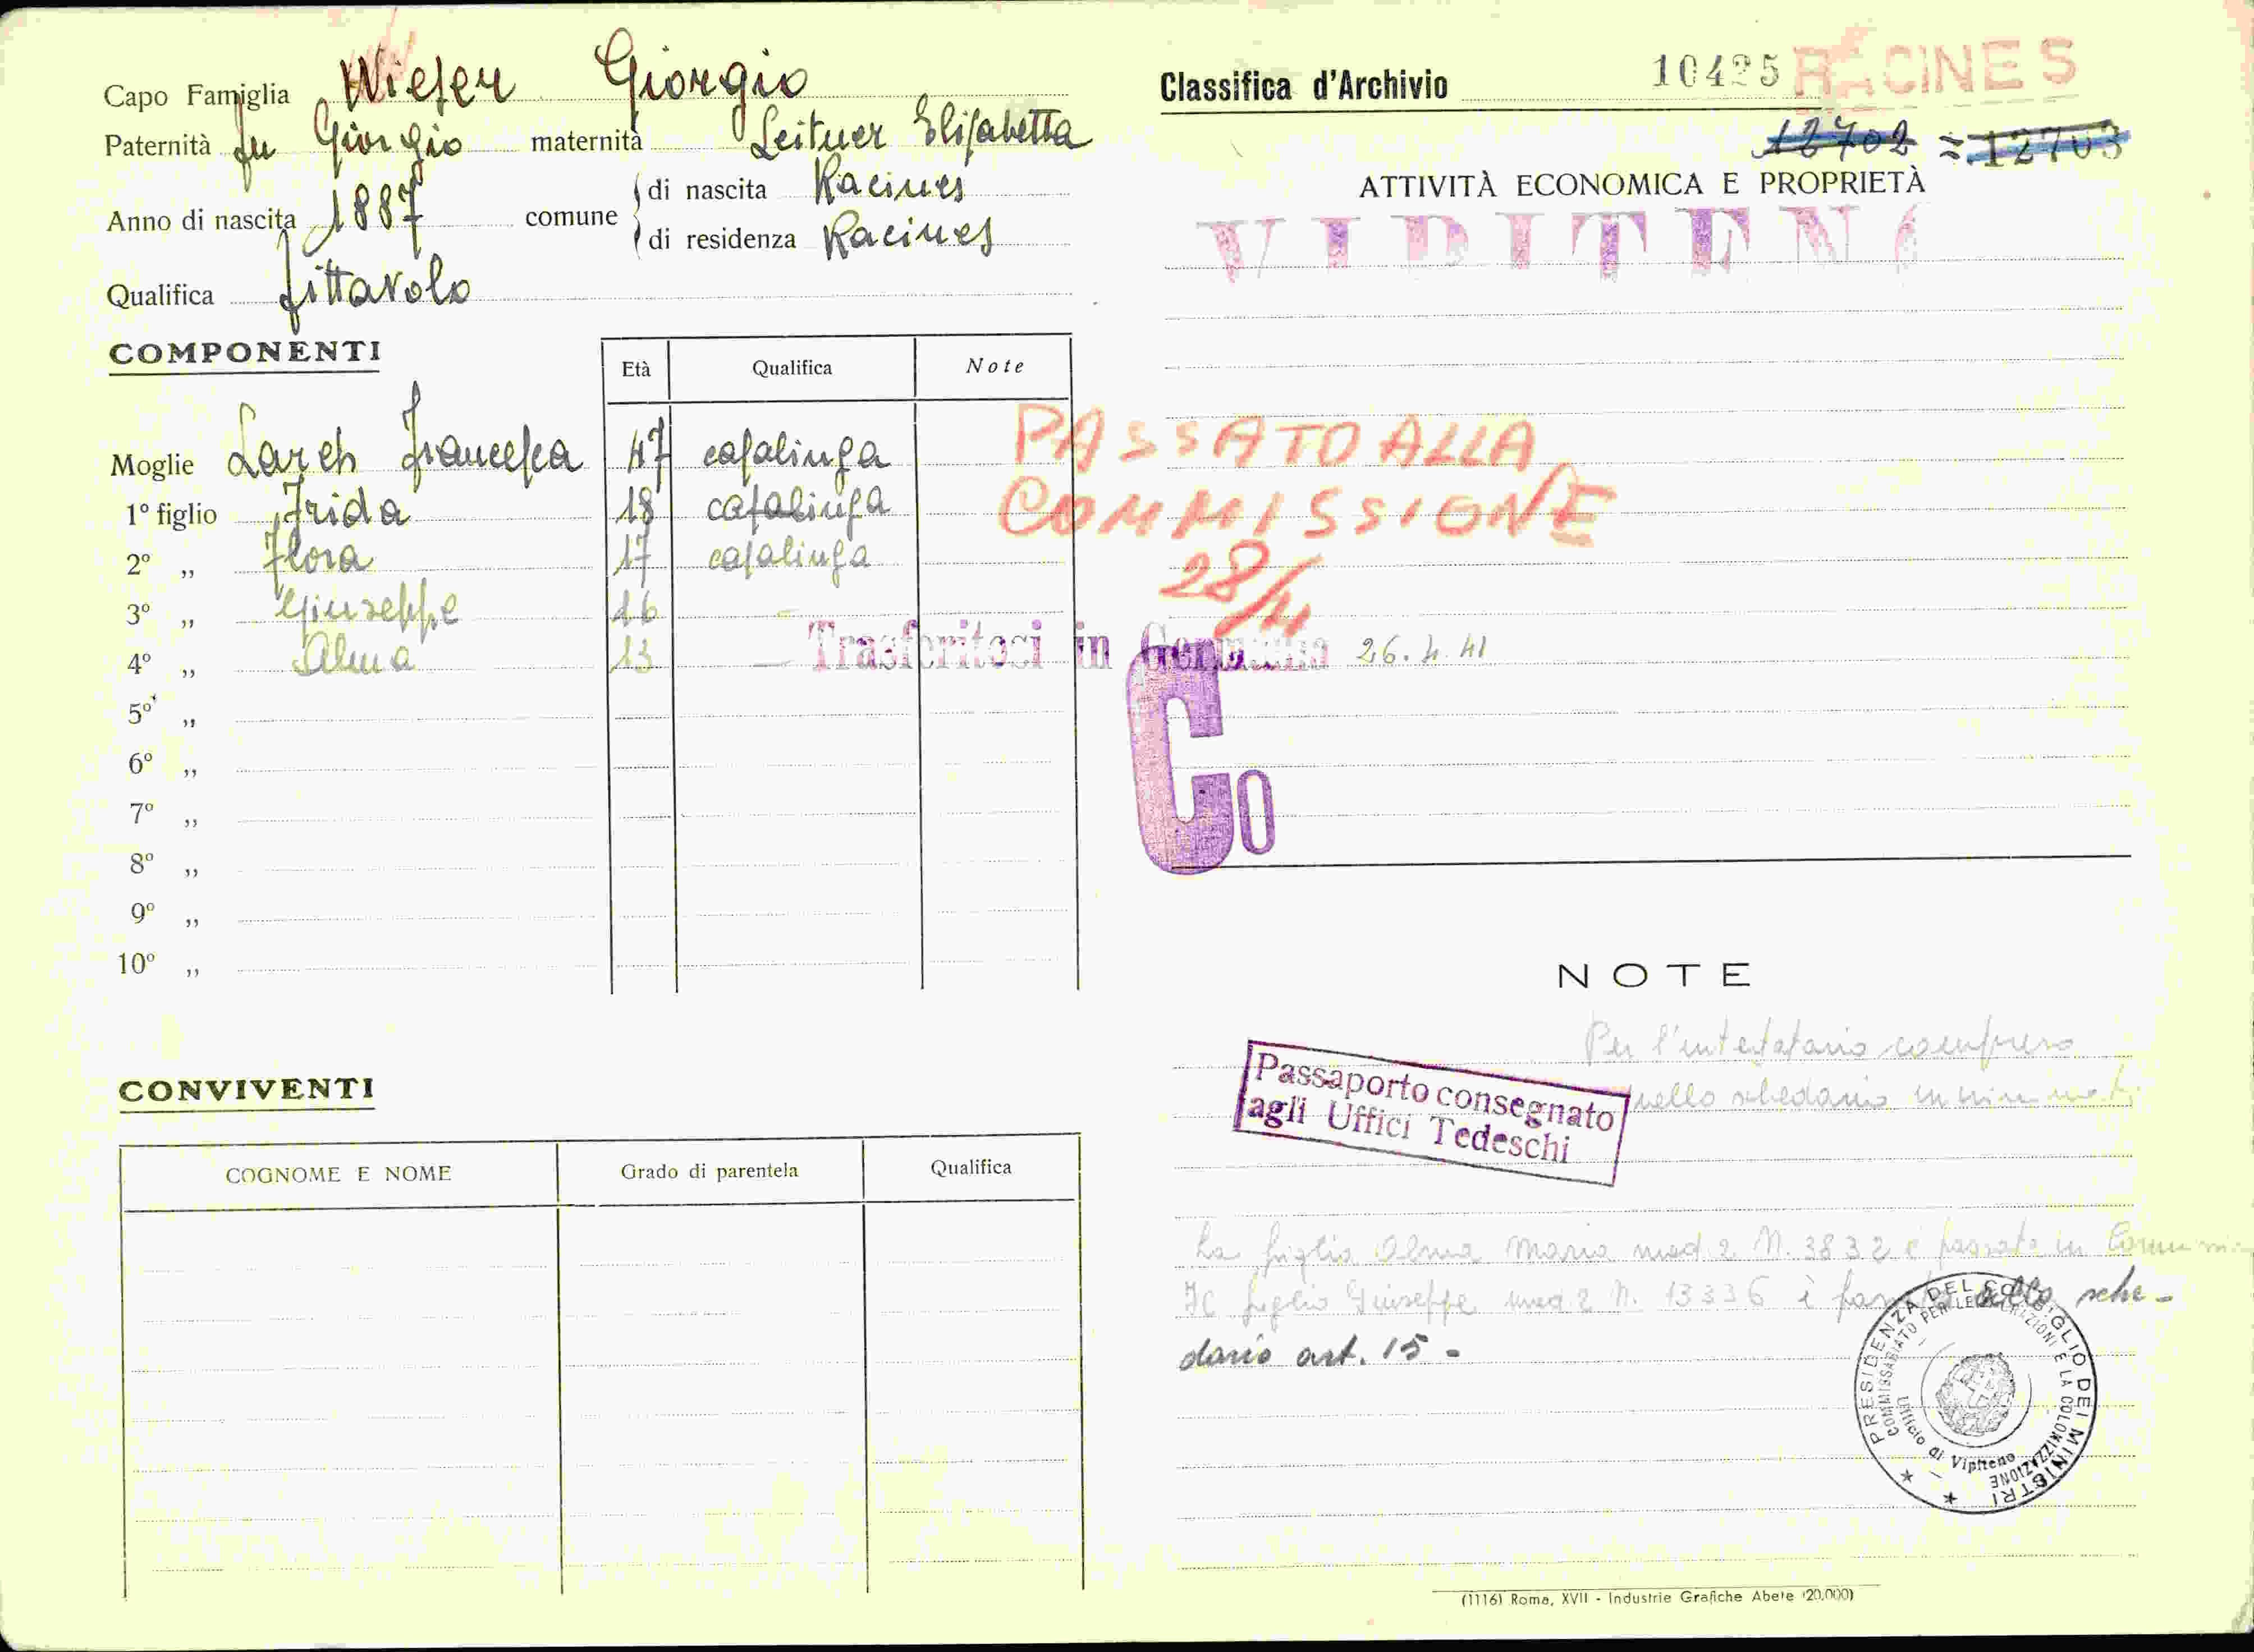 Capo Famiglia Wieser Giorgio
Paternità fu Giorgio maternità Leitner Elisabetta
Anno di nascita 1887 comune di nascita Racines
di residenza Racines
Qualifica fittavolo
COMPONENTI
Età Qualifica Note
Moglie Larch Francesca 47 casalinga
1º figlio Frida 18 casalinga
2º „ Flora 17 casalinga
3º „ Giuseppe 16 -
4º „ Alma 13 -
5º „
6º „
7º „
8º „
9º „
10º „
CONVIVENTI
COGNOME E NOME Grado di parentela Qualifica
Classifica d'Archivio 10425 RACINES
12702 = 12703
ATTIVITÀ ECONOMICA E PROPRIETÀ
VIPITENO
PASSATO ALLA
COMMISSIONE
28/11
Trasferitosi in Germania 26.4.41
Co
NOTE
Per l'intestatario compreso
nello schedario
Passaporto consegnato
agli Uffici Tedeschi
La figlia Alma Maria mod. 2 N. 3832 è passata in
Il figlio Giuseppe mod. 2 N. 13336 è passato allo sche-
dario art. 15 -
PRESIDENZA DEL CONSIGLIO DEI MINISTRI
COMMISSARIATO PER LE MIGRAZIONI E LA COLONIZZAZIONE
Ufficio di Vipiteno
(1116) Roma, XVII - Industrie Grafiche Abete (20.000)